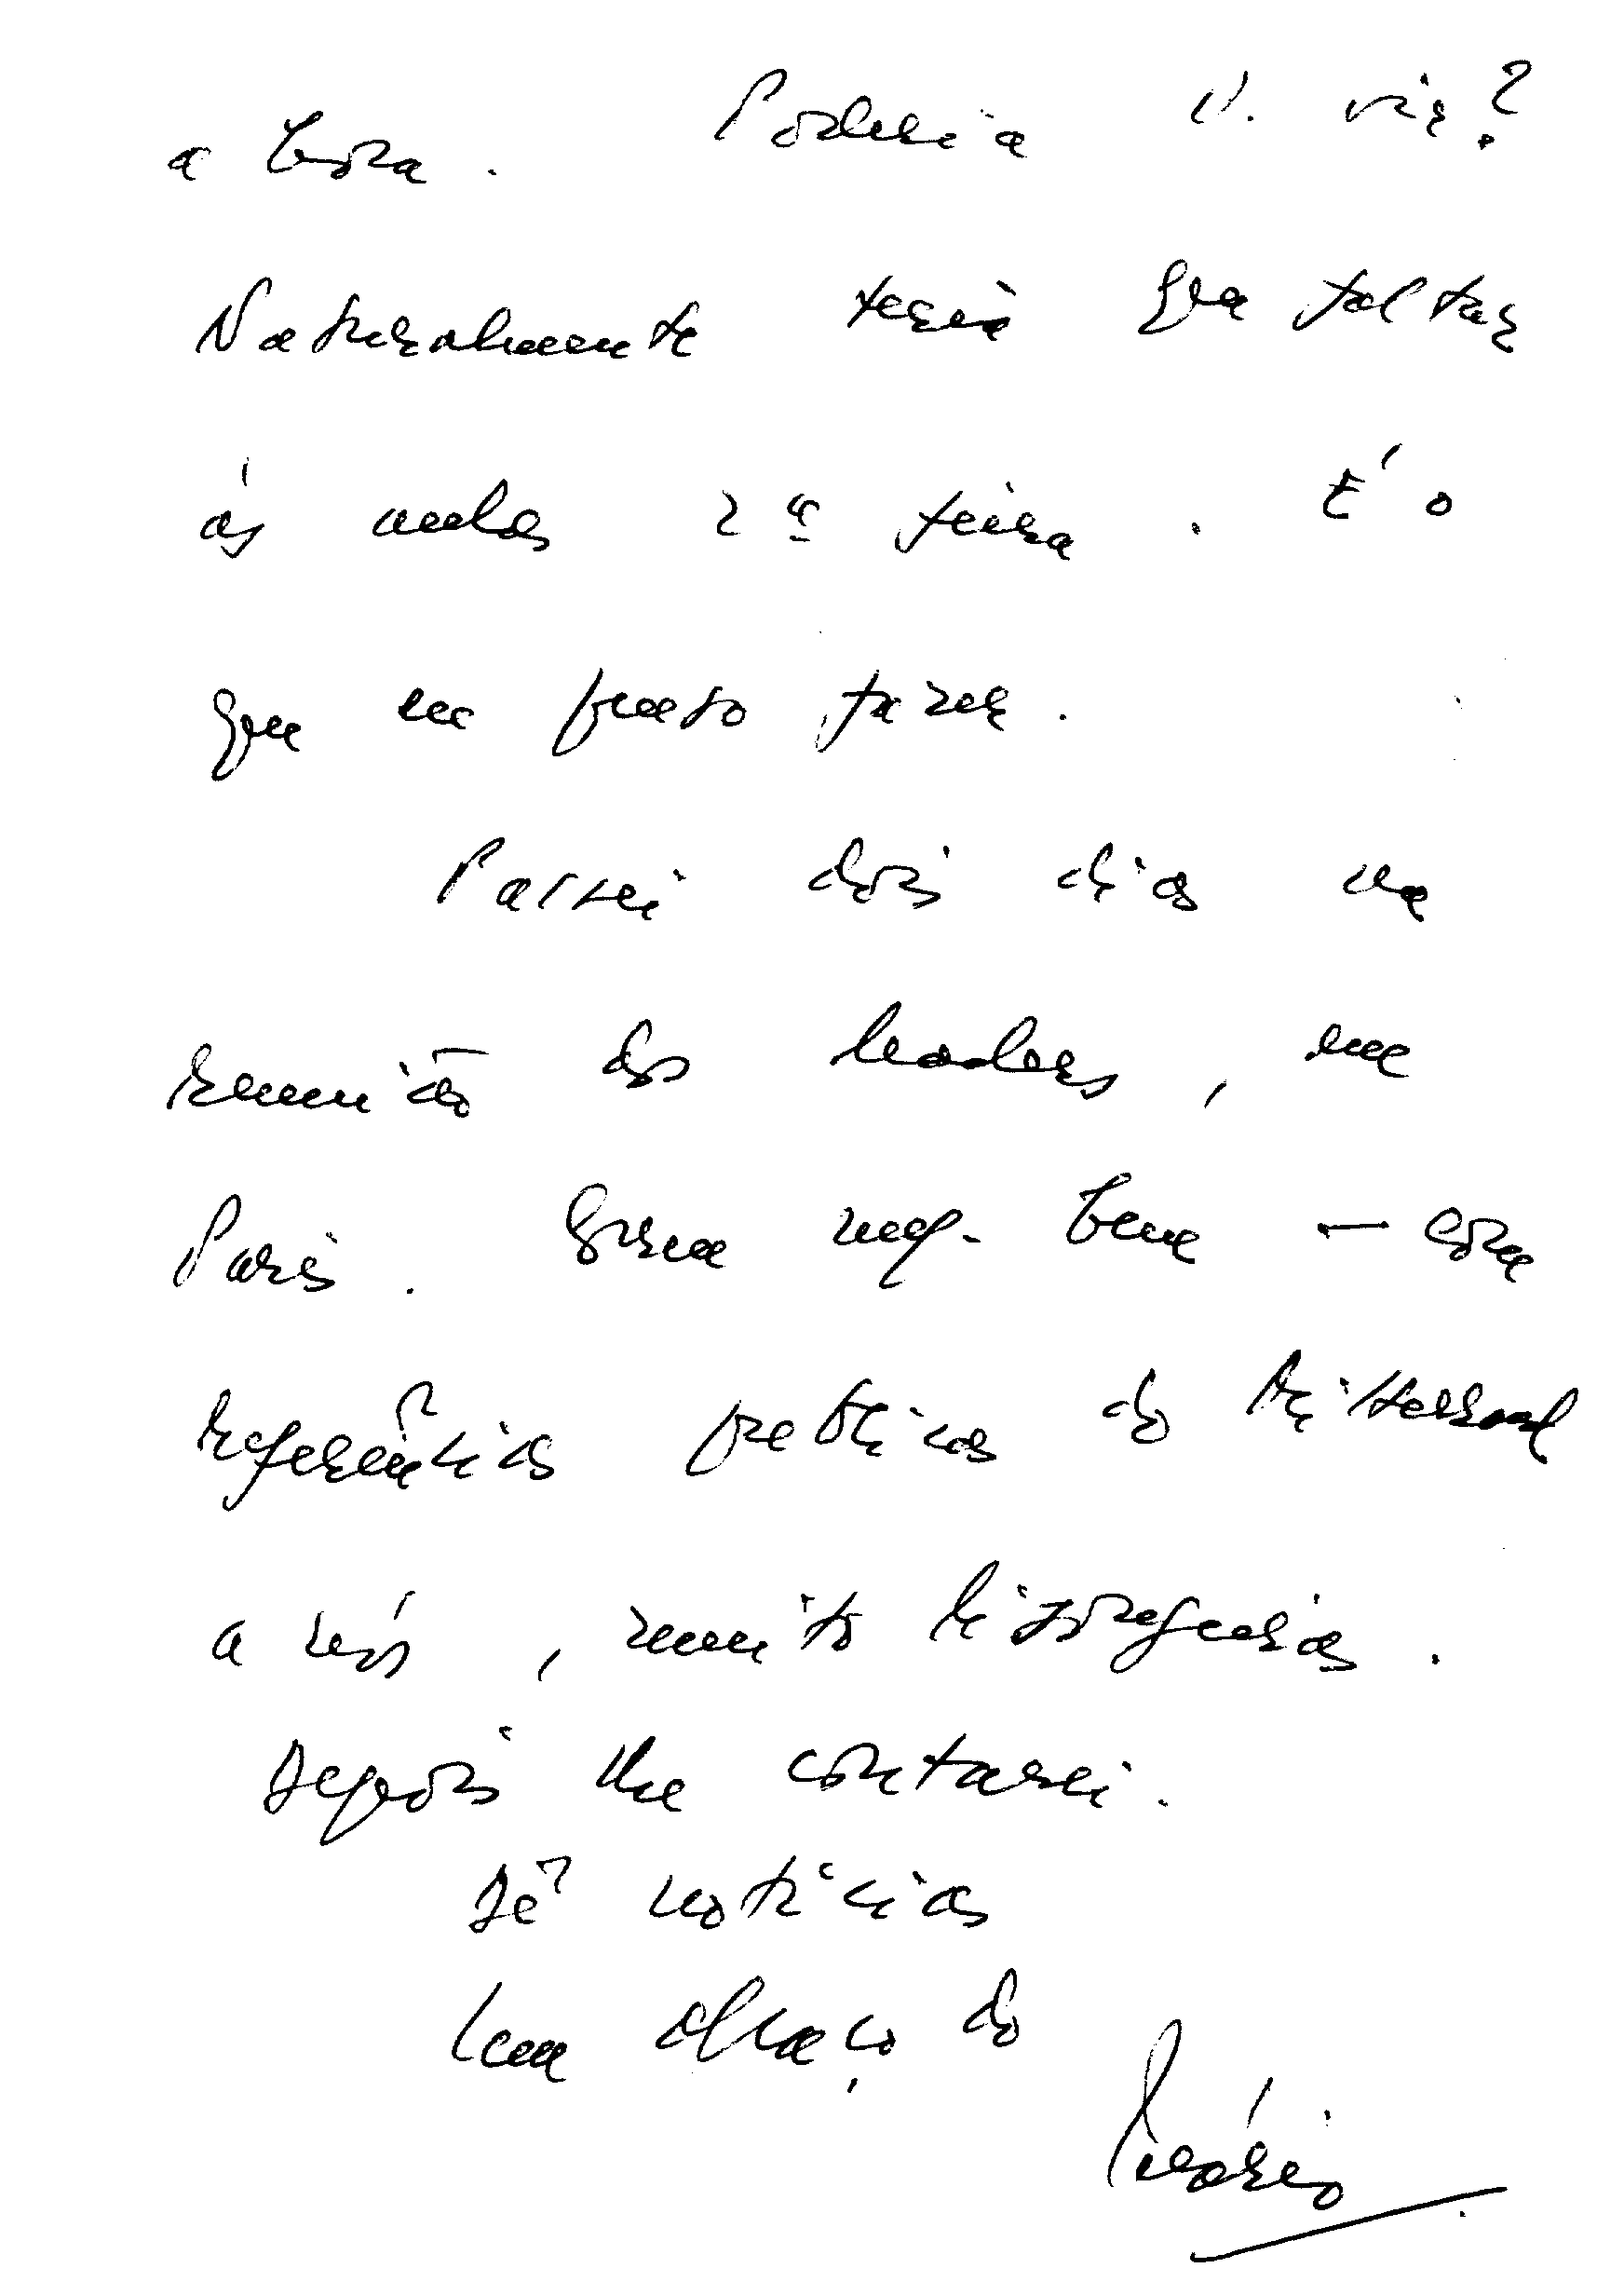 a boa. Poderia V. vir?
Naturalmente teria que faltar
às aulas 2ª feira. É o
que eu penso fazer.
Passei dois dias na
reunião dos leaders, em
Paris. Correu mt. bem — com
referências públicas do Mitterrand
a nós, muito lisongeiras.
Depois lhe contarei.
Dê notícias
Um abraço do
Mário